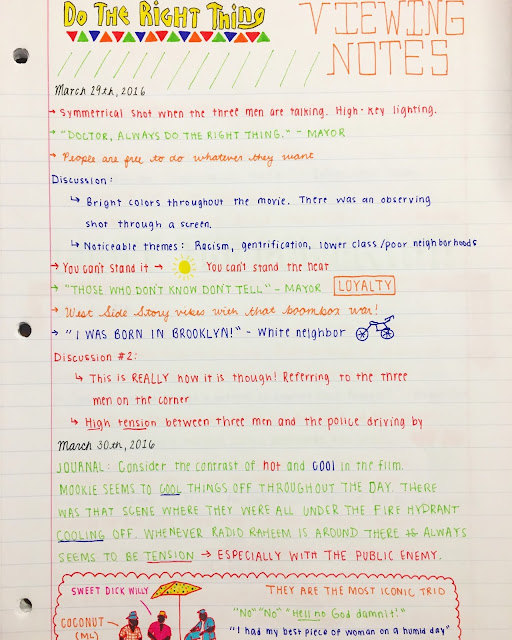 Do The Right Thing
VIEWING
NOTES
March 29th, 2016
→ Symmetrical shot when the three men are talking. High-key lighting.
→ "DOCTOR, ALWAYS DO THE RIGHT THING." - MAYOR
→ People are free to do whatever they want
Discussion:
↳ Bright colors throughout the movie. There was an observing
shot through a screen.
↳ Noticeable themes: Racism, gentrification, lower class/poor neighborhoods
→ You can't stand it → You can't stand the heat
→ "THOSE WHO DON'T KNOW DON'T TELL" - MAYOR LOYALTY
→ West Side Story vibes with that boombox war!
→ "I WAS BORN IN BROOKLYN!" - White neighbor
Discussion #2:
↳ This is REALLY how it is though! Referring to the three
men on the corner
↳ High tension between three men and the police driving by
March 30th, 2016
JOURNAL: Consider the contrast of hot and cool in the film.
MOOKIE SEEMS TO COOL THINGS OFF THROUGHOUT THE DAY. THERE
WAS THAT SCENE WHERE THEY WERE ALL UNDER THE FIRE HYDRANT
COOLING OFF. WHENEVER RADIO RAHEEM IS AROUND THERE ALWAYS
SEEMS TO BE TENSION → ESPECIALLY WITH THE PUBLIC ENEMY.
SWEET DICK WILLY
THEY ARE THE MOST ICONIC TRIO
COCONUT
(ML)
"No" "No" "Hell no God damnit!"
"I had my best piece of woman on a humid day"